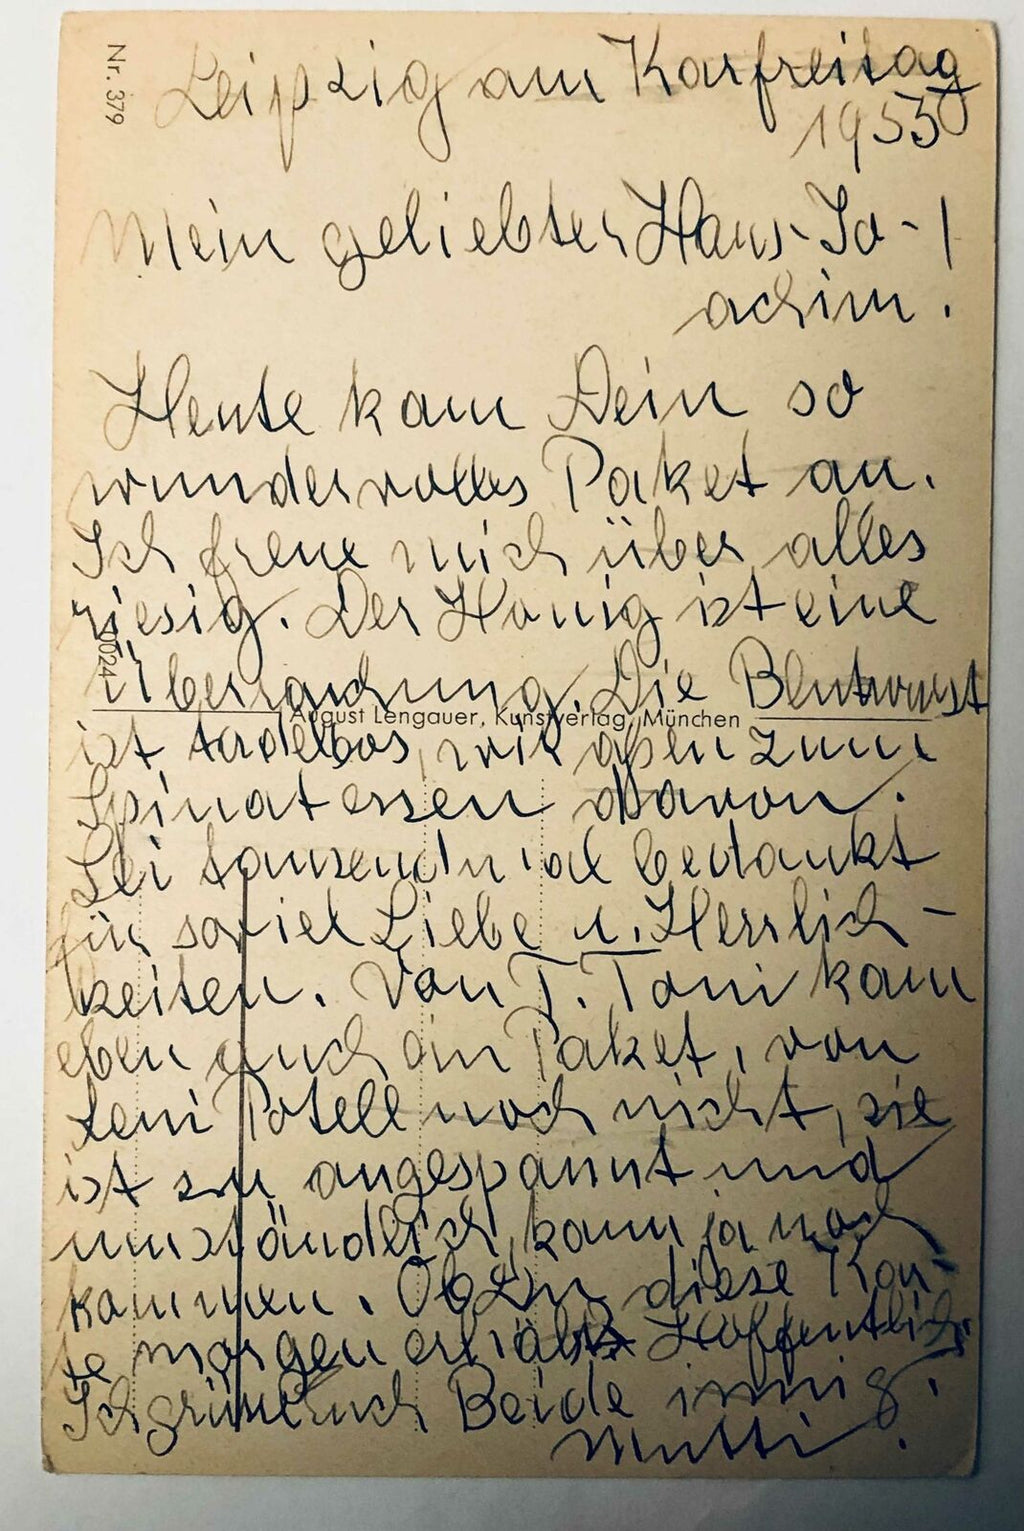 Nr. 379
Leipzig am Karfreitag
1953
Mein geliebter Hans-Jo-!
achim.
Heute kam Dein so
wundervolles Paket an.
Ich freue mich über alles
riesig. Der Honig ist eine
Überraschung. Die Blutwurst
0024
August Lengauer, Kunstverlag, München
ist tadellos, wir aßen zum
Spinatessen davon.
Sei tausendmal bedankt
für soviel Liebe u. Herrlich-
keiten. Von T. Toni kam
eben auch ein Paket, von
Leni Potell noch nicht, sie
ist zu angespannt und
umständlich, kann ja noch
kommen. Ob Du diese Kar-
te morgen erhältst? Hoffentlich.
Ich grüße Euch Beide innig.
Mutti.